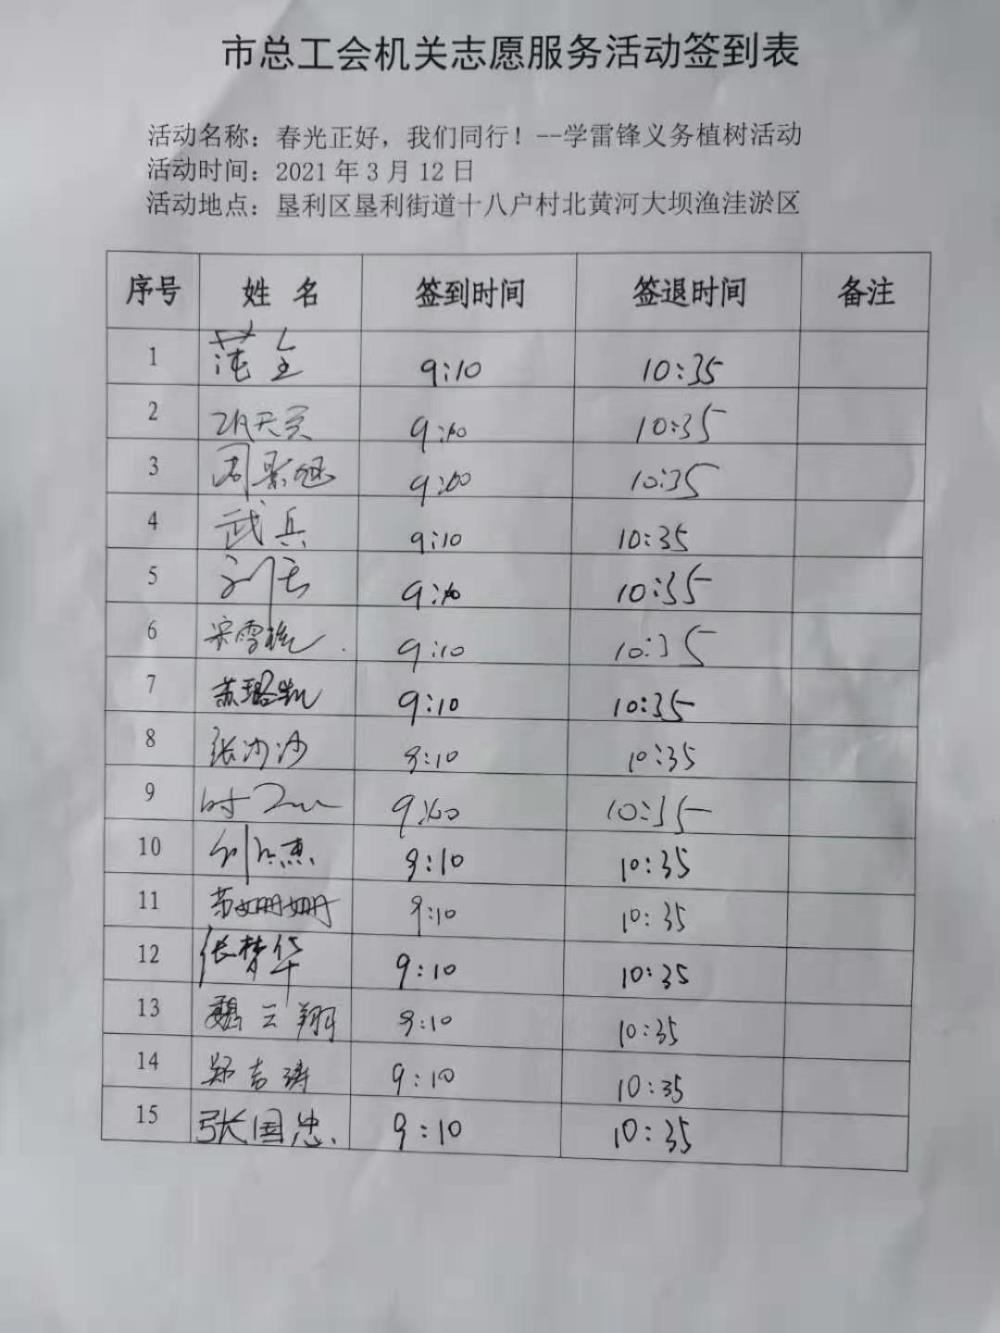 市总工会机关志愿服务活动签到表
活动名称：春光正好，我们同行！--学雷锋义务植树活动
活动时间：2021年3月12日
活动地点：垦利区垦利街道十八户村北黄河大坝渔洼淤区
序号 姓 名 签到时间 签退时间 备注
1 9:10 10:35
2 9:10 10:35
3 9:00 10:35
4 武兵 9:10 10:35
5 9:10 10:35
6 9:10 10:35
7 苏璐凯 9:10 10:35
8 张沙沙 9:10 10:35
9 10:35
10 9:10 10:35
11 苏姗姗 9:10 10:35
12 张梦华 9:10 10:35
13 魏云翔 9:10 10:35
14 郑吉涛 9:10 10:35
15 张国忠 9:10 10:35